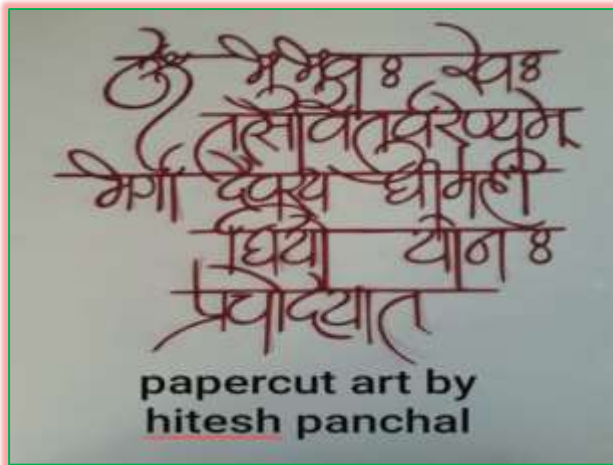 ॐ भुर्भुवः स्वः
तत्सवितुर्वरेण्यम्
भर्गो देवस्य धीमही
धियो योनः
प्रचोदयात
papercut art by
hitesh panchal